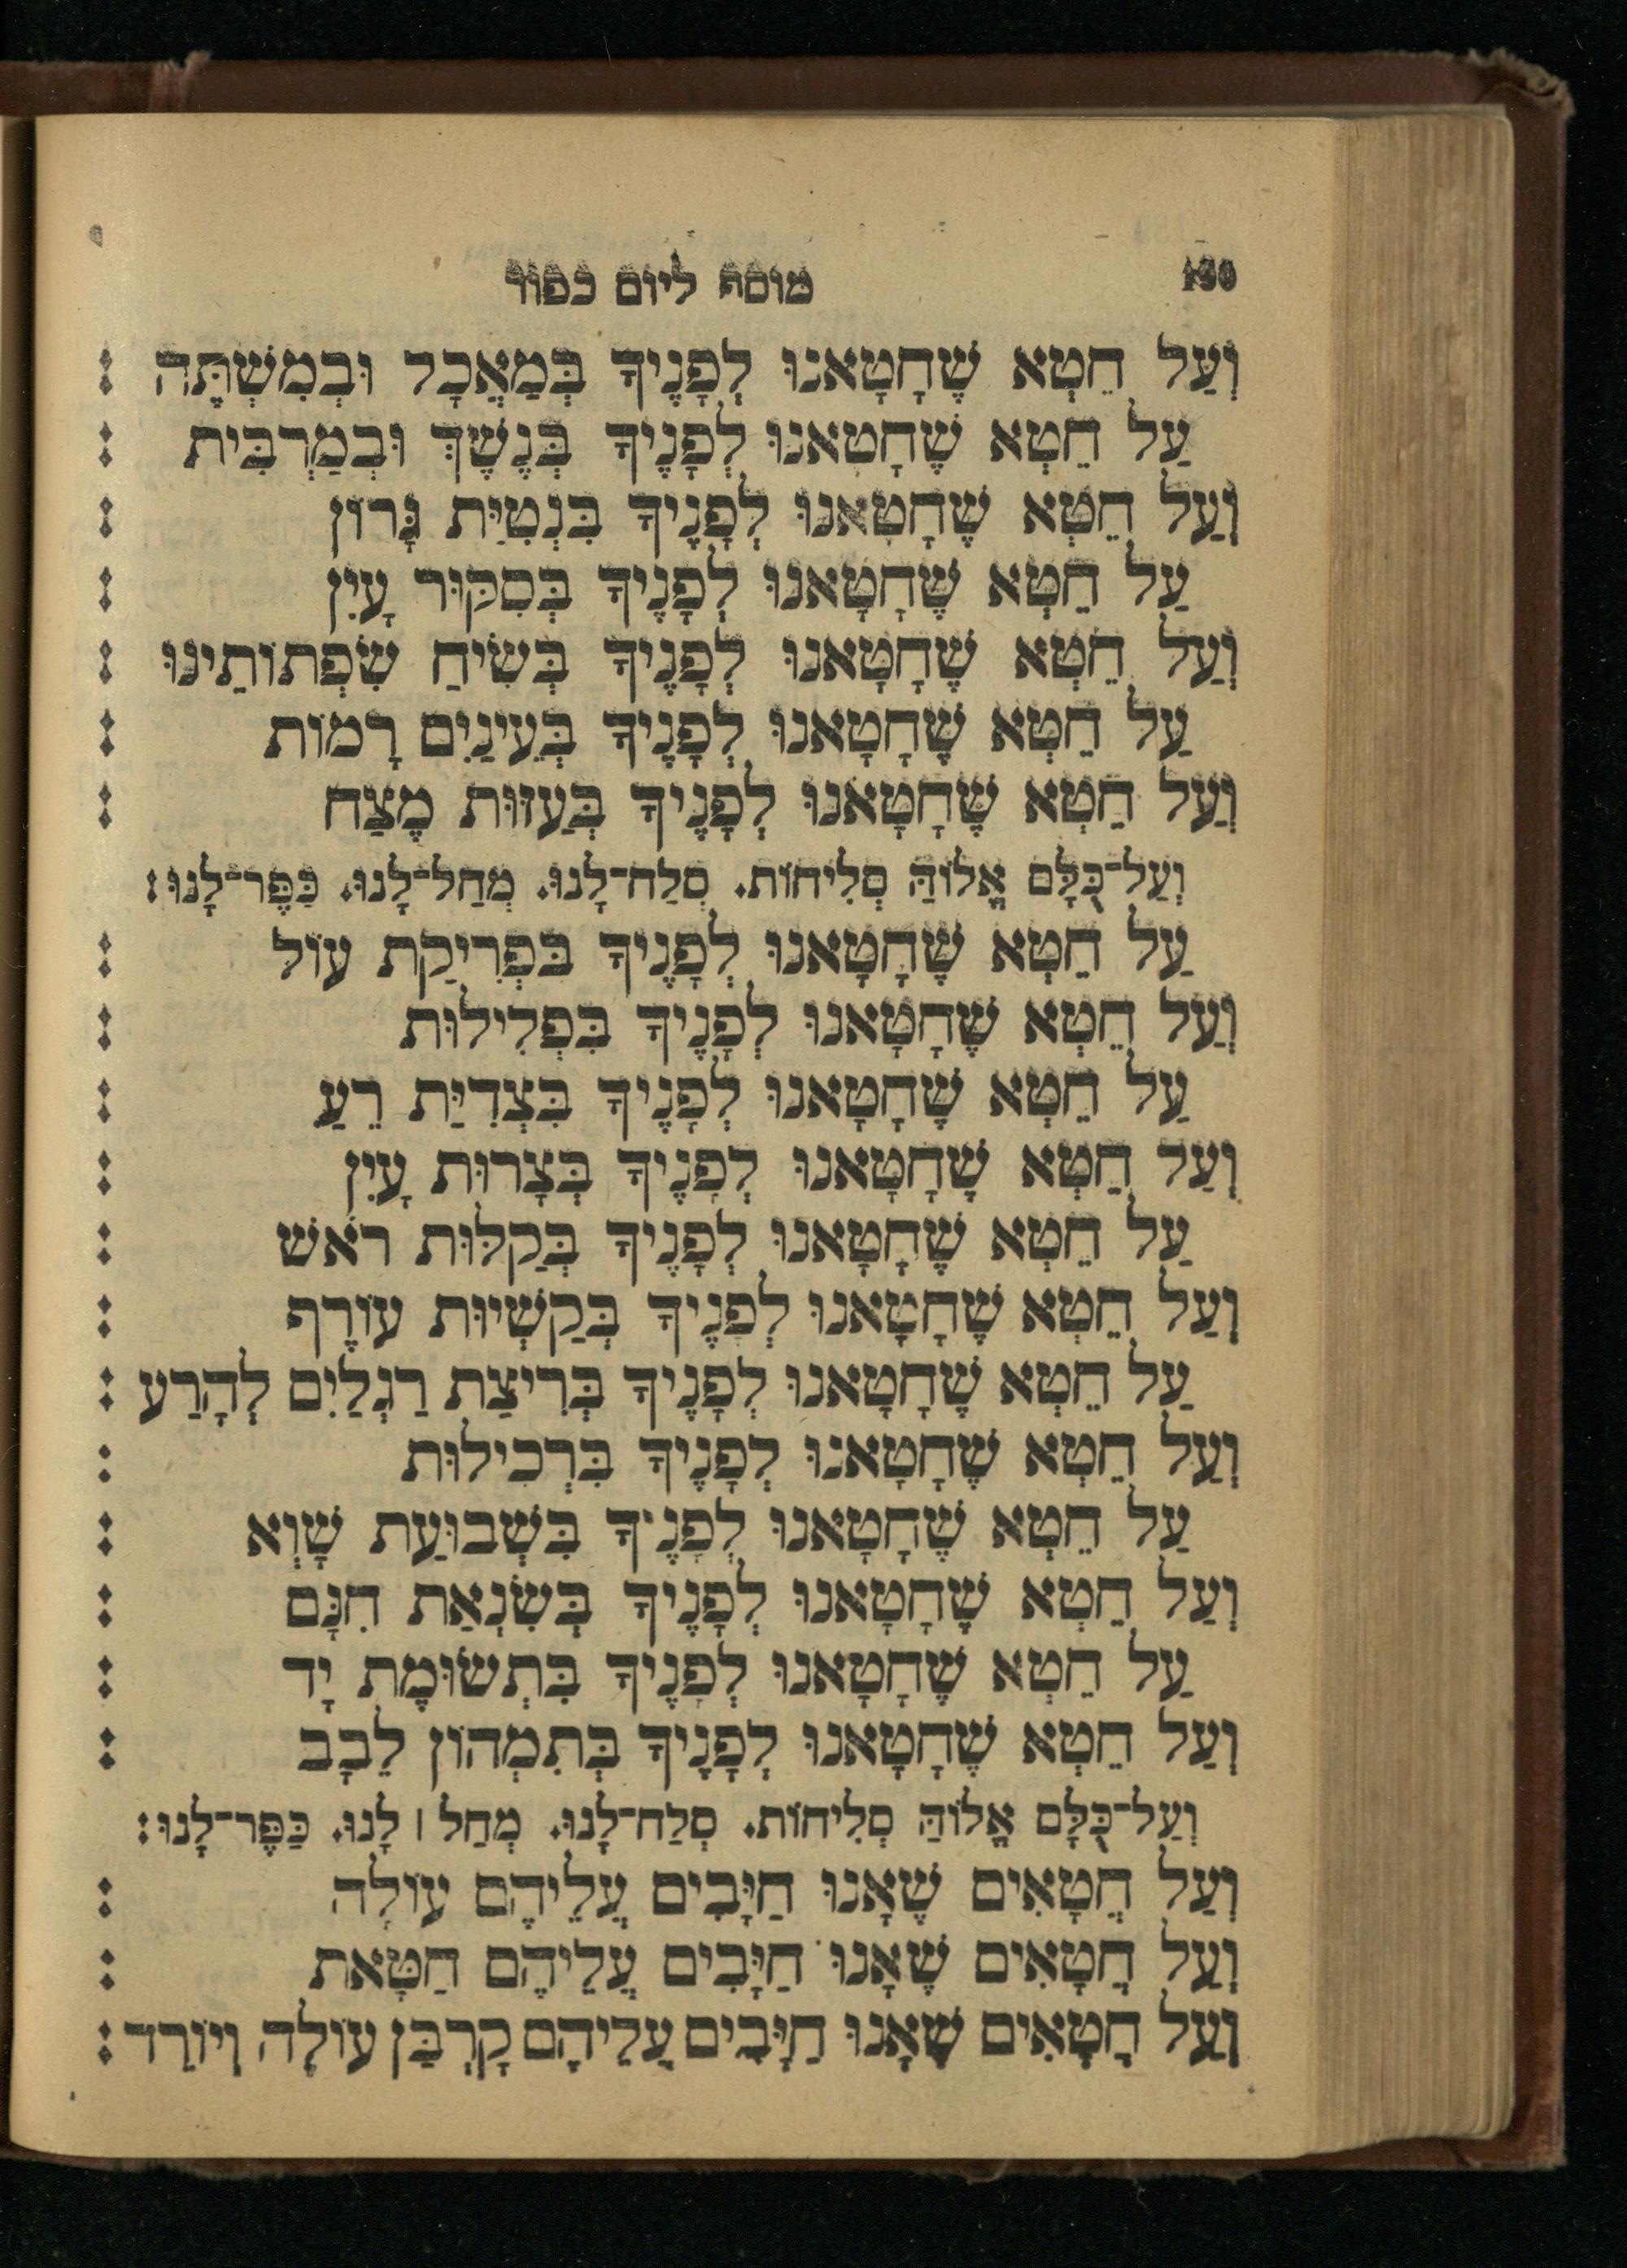 מוסף ליום כפור
וְעַל חֵטְא שֶׁחָטָאנוּ לְפָנֶיךָ בְּמַאֲכָל וּבְמִשְׁתֶּה :
עַל חֵטְא שֶׁחָטָאנוּ לְפָנֶיךָ בְּנֶשֶׁךְ וּבְמַרְבִּית :
וְעַל חֵטְא שֶׁחָטָאנוּ לְפָנֶיךָ בִּנְטִיַּת גָּרוֹן :
עַל חֵטְא שֶׁחָטָאנוּ לְפָנֶיךָ בְּסִקּוּר עָיִן :
וְעַל חֵטְא שֶׁחָטָאנוּ לְפָנֶיךָ בְּשִׂיחַ שִׂפְתוֹתֵינוּ :
עַל חֵטְא שֶׁחָטָאנוּ לְפָנֶיךָ בְּעֵינַיִם רָמוֹת :
וְעַל חֵטְא שֶׁחָטָאנוּ לְפָנֶיךָ בְּעַזּוּת מֶצַח :
וְעַל־כֻּלָּם אֱלוֹהַּ סְלִיחוֹת. סְלַח־לָנוּ. מְחַל־לָנוּ. כַּפֶּר־לָנוּ:
עַל חֵטְא שֶׁחָטָאנוּ לְפָנֶיךָ בִּפְרִיקַת עוֹל :
וְעַל חֵטְא שֶׁחָטָאנוּ לְפָנֶיךָ בִּפְלִילוּת :
עַל חֵטְא שֶׁחָטָאנוּ לְפָנֶיךָ בִּצְדִיַּת רֵעַ :
וְעַל חֵטְא שֶׁחָטָאנוּ לְפָנֶיךָ בְּצָרוּת עָיִן :
עַל חֵטְא שֶׁחָטָאנוּ לְפָנֶיךָ בְּקַלּוּת רֹאשׁ :
וְעַל חֵטְא שֶׁחָטָאנוּ לְפָנֶיךָ בְּקַשְׁיוּת עוֹרֶף :
עַל חֵטְא שֶׁחָטָאנוּ לְפָנֶיךָ בְּרִיצַת רַגְלַיִם לְהָרַע :
וְעַל חֵטְא שֶׁחָטָאנוּ לְפָנֶיךָ בִּרְכִילוּת :
עַל חֵטְא שֶׁחָטָאנוּ לְפָנֶיךָ בִּשְׁבוּעַת שָׁוְא :
וְעַל חֵטְא שֶׁחָטָאנוּ לְפָנֶיךָ בְּשִׂנְאַת חִנָּם :
עַל חֵטְא שֶׁחָטָאנוּ לְפָנֶיךָ בִּתְשׂוּמֶת יָד :
וְעַל חֵטְא שֶׁחָטָאנוּ לְפָנֶיךָ בְּתִמְהוֹן לֵבָב :
וְעַל־כֻּלָּם אֱלוֹהַּ סְלִיחוֹת. סְלַח־לָנוּ. מְחַל ׀ לָנוּ. כַּפֶּר־לָנוּ:
וְעַל חֲטָאִים שֶׁאָנוּ חַיָּבִים עֲלֵיהֶם עוֹלָה :
וְעַל חֲטָאִים שֶׁאָנוּ חַיָּבִים עֲלֵיהֶם חַטָּאת :
וְעַל חֲטָאִים שֶׁאָנוּ חַיָּבִים עֲלֵיהֶם קָרְבַּן עוֹלֶה וְיוֹרֵד :